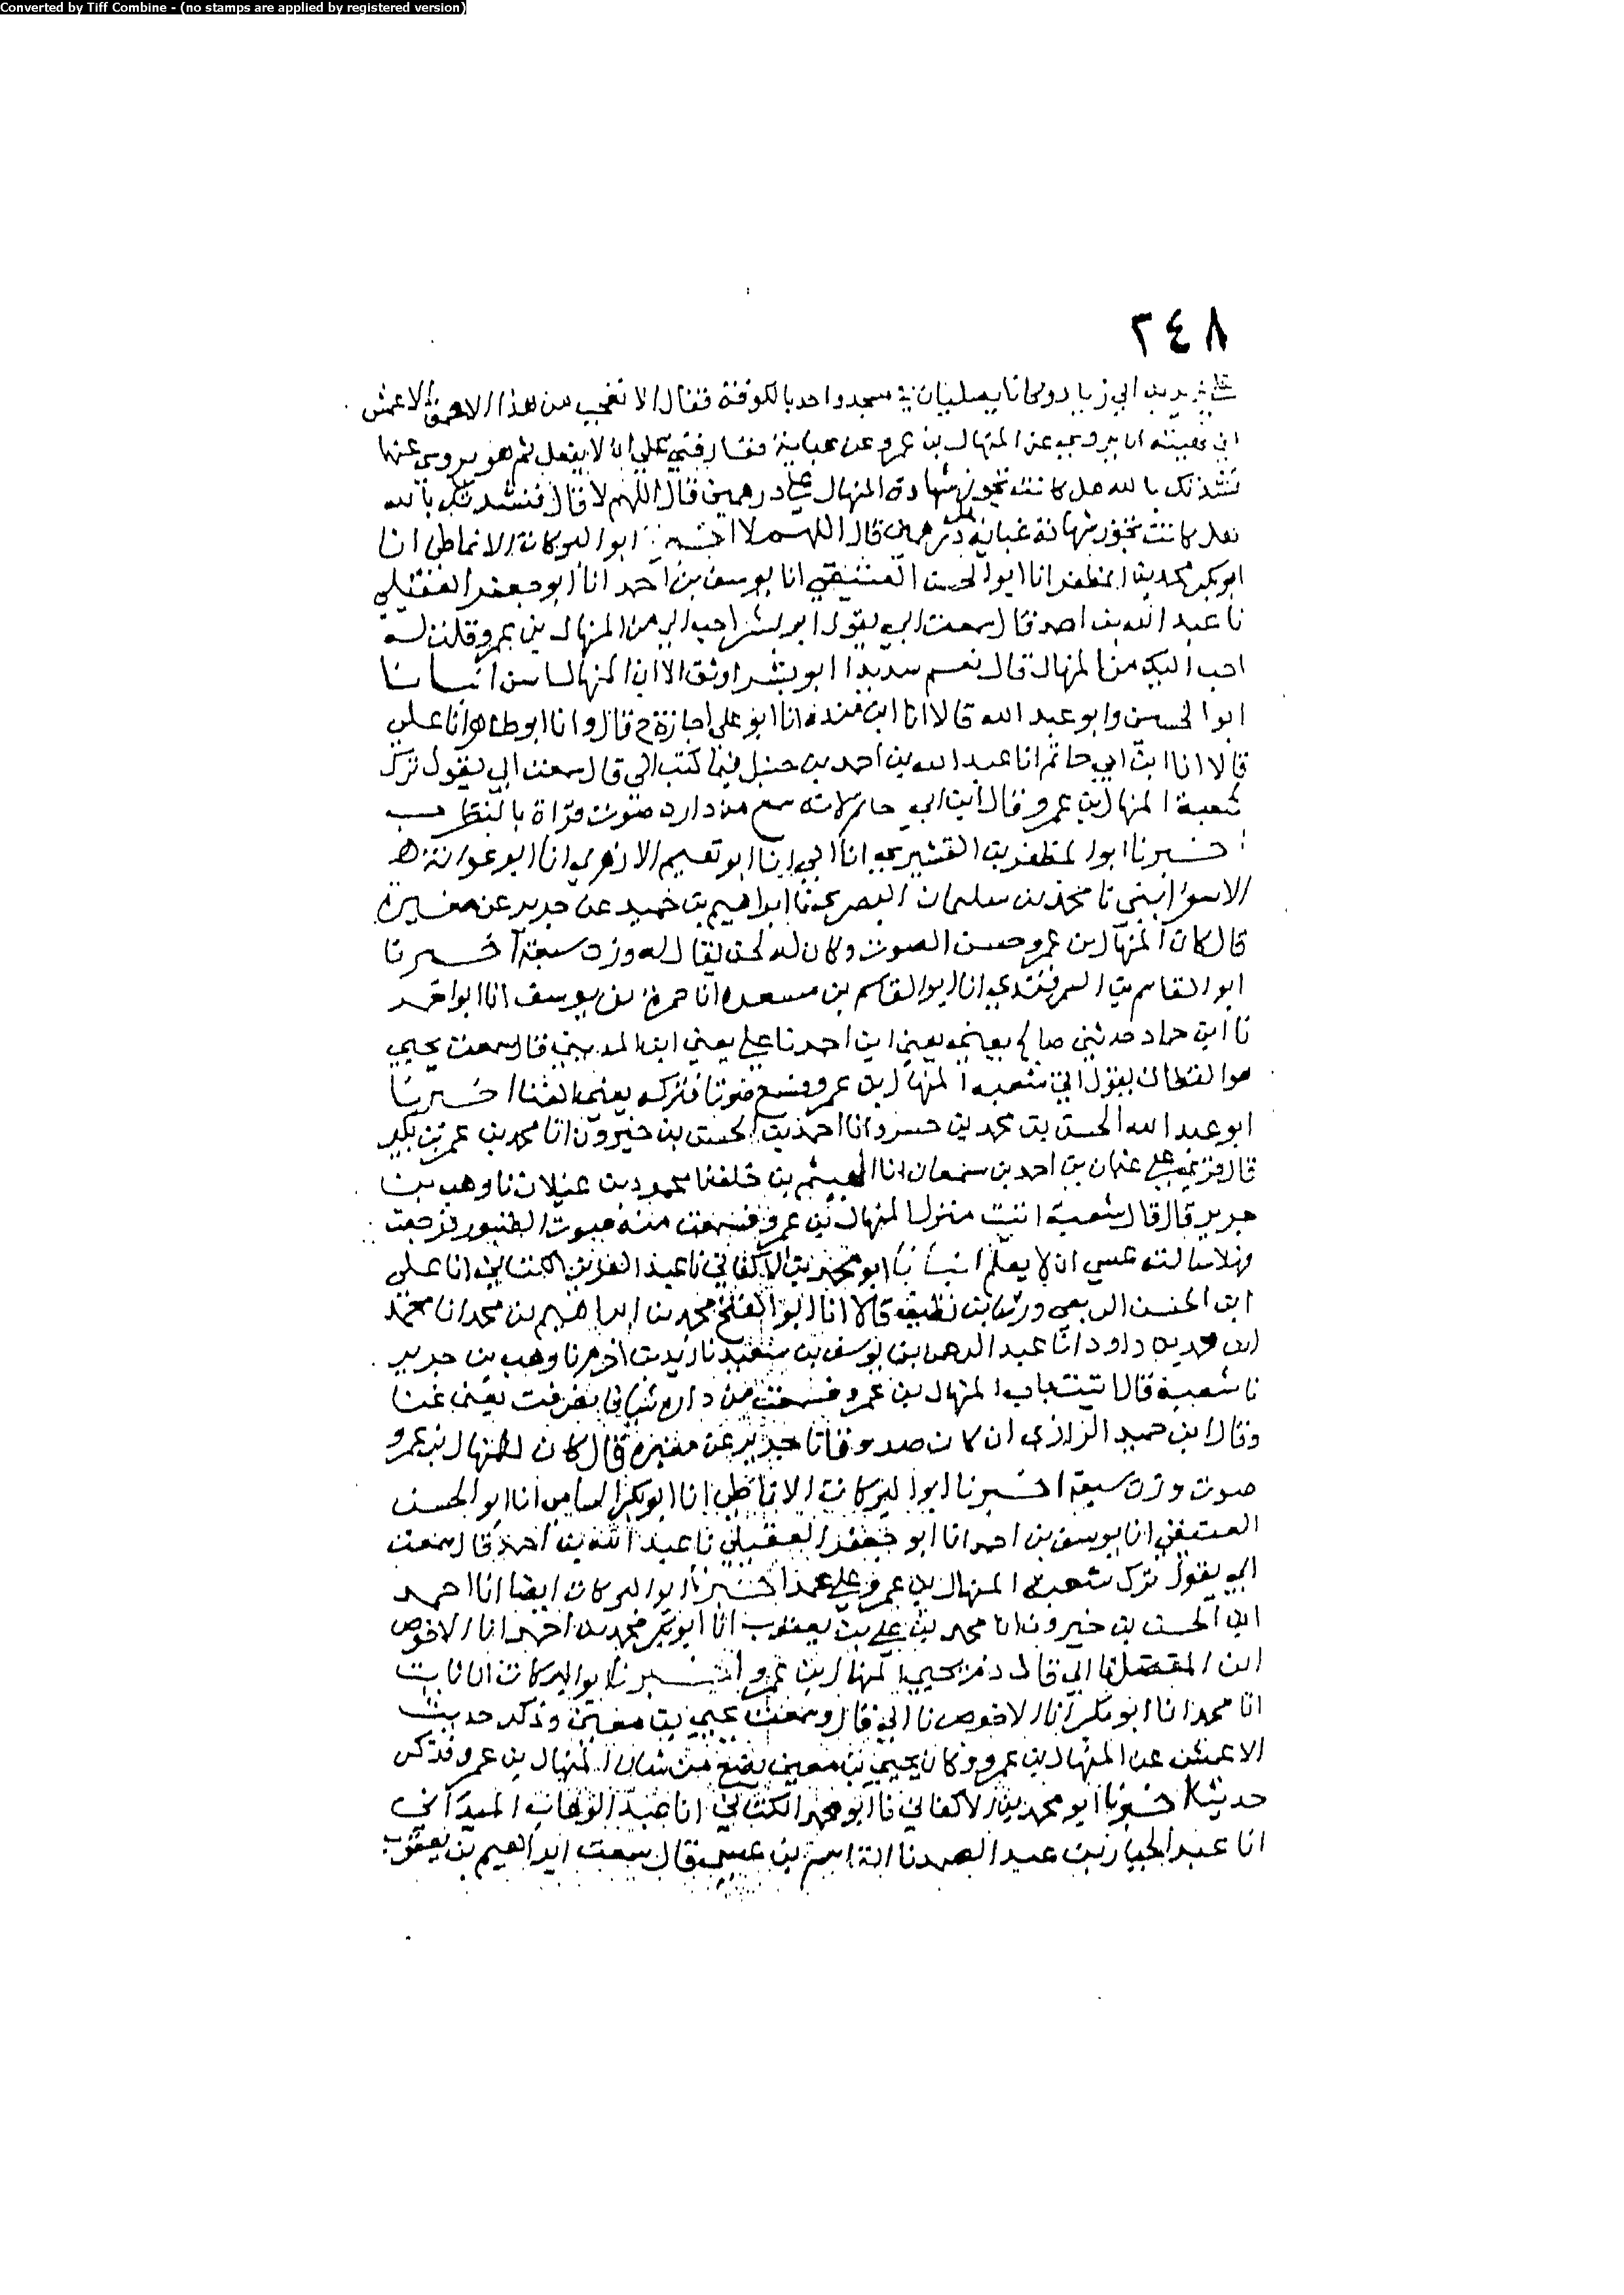 Converted by Tiff Combine - (no stamps are applied by registered version)
٢٤٨
يزيد بن ابي زياد وكانا يصليان في مسجد واحد بالكوفة فقال الا تعجب من هذا الاحمق الاعمش
اني نهيته ان يروي عن المنهال بن عمرو عن عباية ففارقني على ان لا يفعل ثم هو يروي عنها
نشدتك بالله هل كانت تجوز شهادة المنهال على درهمين قال اللهم لا قال فنشدتك بالله
هل كانت تجوز شهادة عباية على درهمين قال اللهم لا اخبرنا ابو البركات الانماطي انا
ابو بكر محمد بن المظفر انا ابو الحسن العتيقي انا يوسف بن احمد انا ابو جعفر العقيلي
نا عبد الله بن احمد قال سمعت ابي يقول ابو بشر احب الي من المنهال بن عمرو قلت له
احب اليك من المنهال قال نعم شديدا ابو بشر اوثق الا ان المنهال اسن انبانا
ابو الحسين وابو عبد الله قالا انا ابن منده انا ابو علي اجازة ح قال وانا ابو طاهر انا علي
قالا انا ابن ابي حاتم انا عبد الله بن احمد بن حنبل فيما كتب الى قال سمعت ابي يقول ترك
شعبة المنهال بن عمرو قال ابن ابي حاتم لانه سمع من داره صوت قراة بالتطريب
اخبرنا ابو المظفر بن القشيري انا ابي انا ابو نعيم الازهري انا ابو عوانة
الاسفرايني نا محمد بن سليمان البصري نا ابراهيم بن حميد عن جرير عن مغيرة
قال كان المنهال بن عمرو حسن الصوت وكان له لحن يقال له وزن سبعة اخبرنا
ابو القاسم بن السمرقندي انا ابو القاسم بن مسعدة انا حمزة بن يوسف انا ابو احمد
نا ابن حماد حدثني صالح يعني ابن احمد نا علي يعني ابن المديني قال سمعت يحيى
هو القطان يقول اتى شعبة المنهال بن عمرو فسمع صوتا فتركه يعني الغنا اخبرنا
ابو عبد الله الحسين بن محمد بن خسرو انا احمد بن الحسن بن خيرون انا محمد بن عمر بن بكير
قال قرئ على عثمان بن احمد بن سمعان انا الهيثم بن خلف نا محمود بن غيلان نا وهب بن
جرير قال قال شعبة اتيت منزل المنهال بن عمرو فسمعت منه صوت الطنبور فرجعت
فهلا سالته عسى ان لا يعلم انبانا ابو محمد بن الاكفاني نا عبد العزيز الكتاني انا علي
ابن الحسن الربعي ورشا بن نظيف قالا انا ابو الفتح محمد بن ابراهيم بن محمد انا محمد
ابن محمد بن داود انا عبد الرحمن بن يوسف بن سعيد نا زيد بن اخزم نا وهب بن جرير
نا شعبة قال اتيت باب المنهال بن عمرو فسمعت من داره شيا فانصرفت يعني غنا
وقال ابن حميد الرازي ان كان صدوقا نا جرير عن مغيرة قال كان للمنهال بن عمرو
صوت وزن سبعة اخبرنا ابو البركات الانماطي انا ابو بكر الشامي انا ابو الحسن
العتيقي انا يوسف بن احمد انا ابو جعفر العقيلي نا عبد الله بن احمد قال سمعت
ابي يقول ترك شعبة المنهال بن عمرو على عمد اخبرنا ابو البركات ايضا انا احمد
ابن الحسن بن خيرون انا محمد بن علي بن يعقوب انا ابو بكر محمد بن احمد انا الاحوص
ابن المفضل نا ابي قال ذم يحيى المنهال بن عمرو اخبرنا ابو البركات انا ثابت
انا محمد انا ابو بكر انا الاحوص نا ابي قال وسمعت يحيى بن معين وذكر حديث
الاعمش عن المنهال بن عمرو وكان يحيى بن معين يضع من شان المنهال بن عمرو فذكر
حديثا اخبرنا ابو محمد بن الاكفاني نا ابو محمد الكتاني انا عبد الوهاب الميداني
انا عبد الجبار بن عبد الصمد نا القاسم بن عيسى قال سمعت ابراهيم بن يعقوب